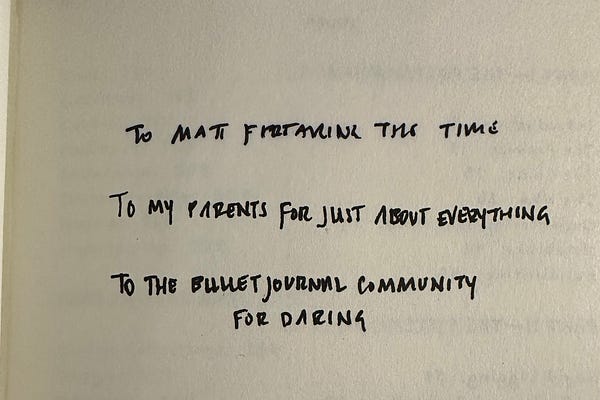 TO MATT TIME
TO MY PARENTS FOR JUST ABOUT EVERYTHING
TO THE BULLET JOURNAL COMMUNITY
FOR DARING